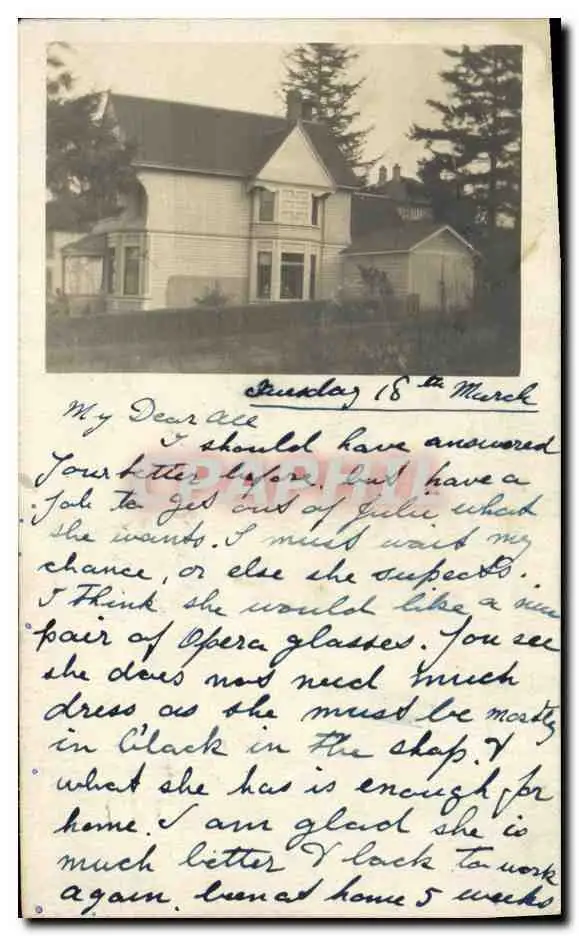 Tuesday 18th March
My Dear All
I should have answered
Your letter before. but have a
Job to get out of Julie what
she wants. I must wait my
chance, or else she supects.
I think she would like a new
pair of Opera glasses. You see
she does not need much
dress as she must be mostly
in Black in the shop. &
what she has is enough for
home. I am glad she is
much better & back to work
again. been at home 5 weeks